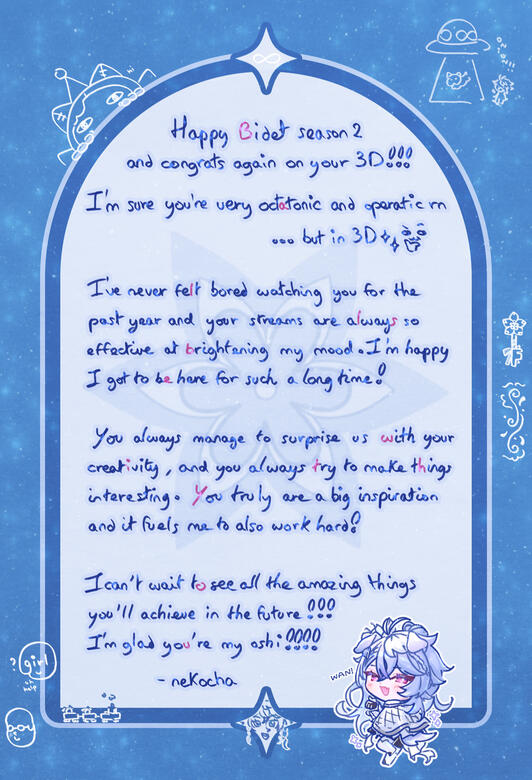 Happy Bidet season 2
and congrats again on your 3D!!!
I'm sure you're very octatonic and operatic rn
... but in 3D
I've never felt bored watching you for the
past year and your streams are always so
effective at brightening my mood. I'm happy
I got to be here for such a long time!
You always manage to surprise us with your
creativity, and you always try to make things
interesting. You truly are a big inspiration
and it fuels me to also work hard!
I can't wait to see all the amazing things
you'll achieve in the future!!!
I'm glad you're my oshi!!!!
- nekocha
WAN!
girl
boy